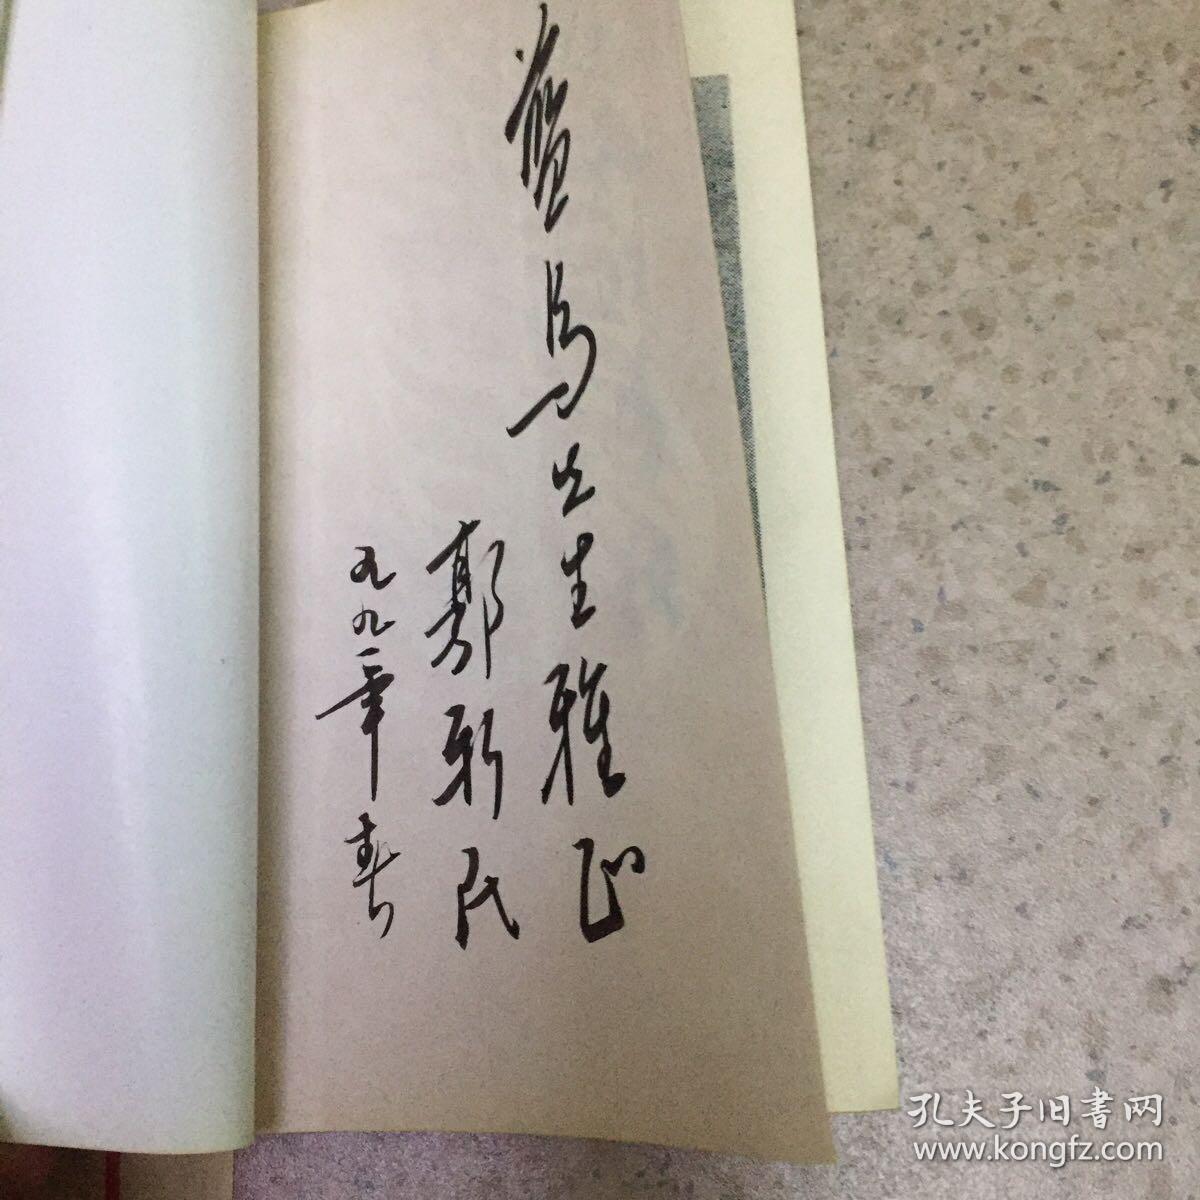 蓝马先生雅正
郭新民
九九一年春
孔夫子旧書网
www.kongfz.com